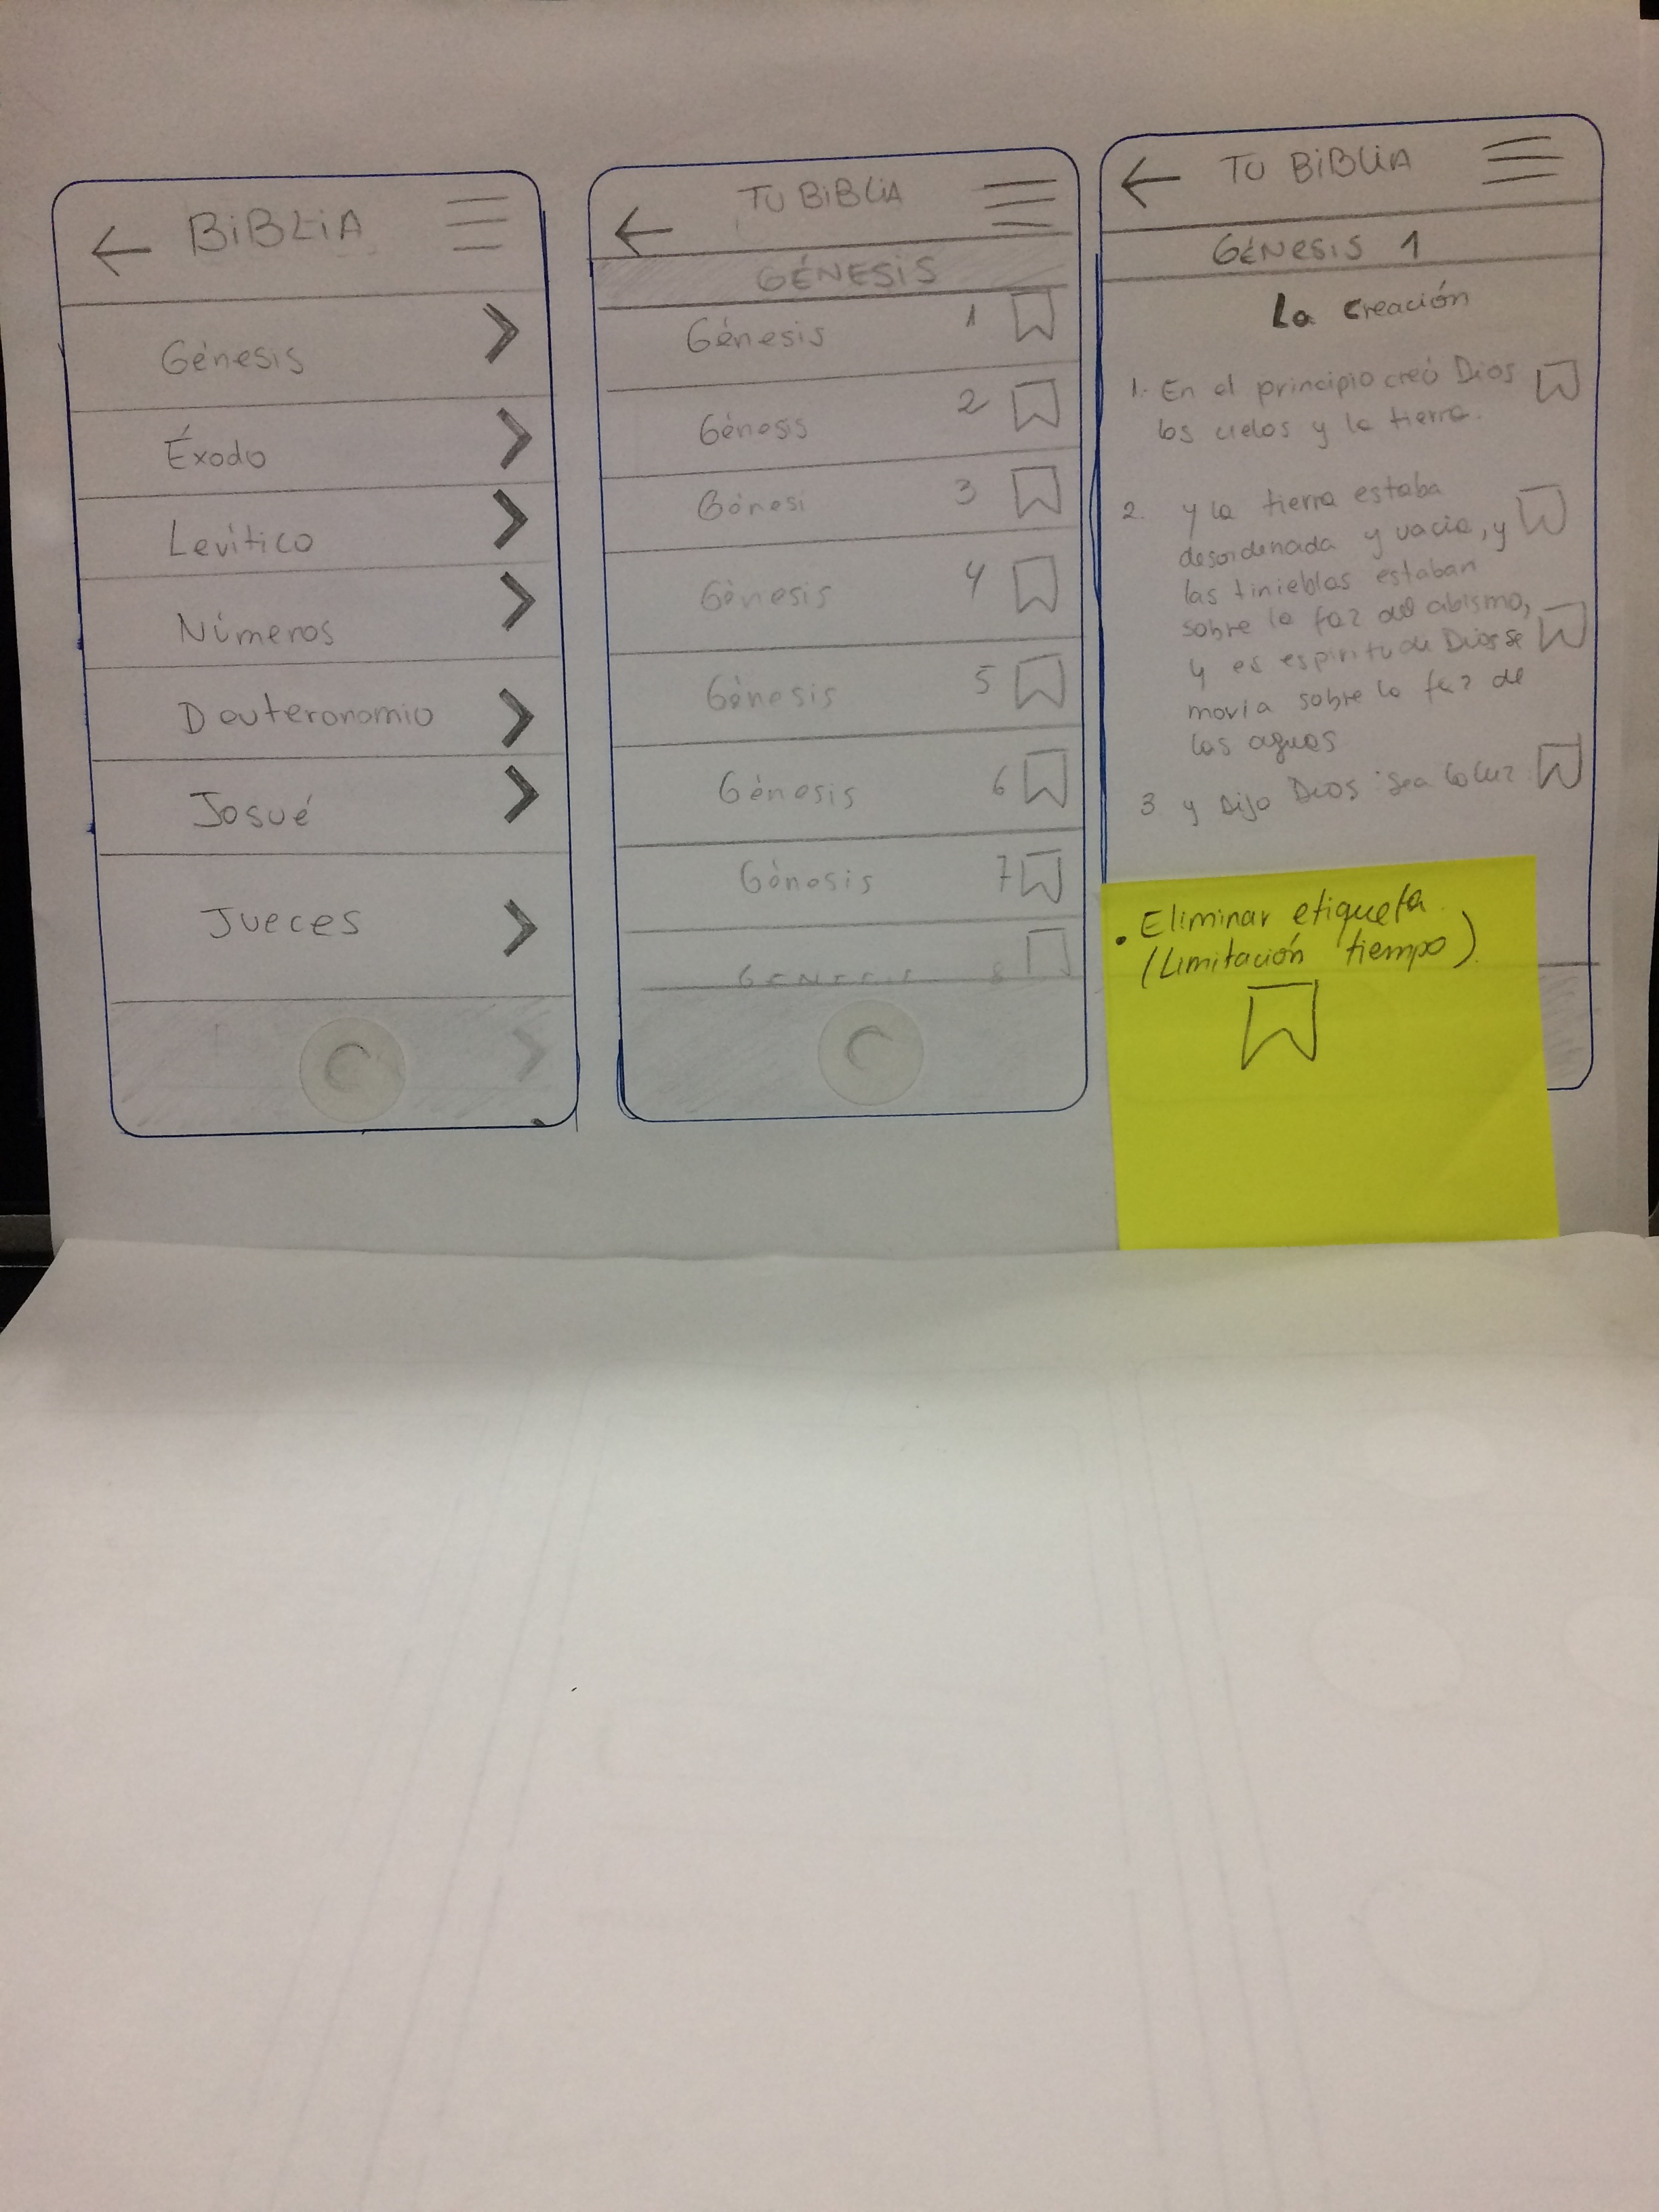 BiBLiA
Génesis
Éxodo
Levítico
Números
Deuteronomio
Josué
Jueces
TU BiBLiA
GÉNESiS
Génesis 1
Génesis 2
Génesi 3
Génesis 4
Génesis 5
Génesis 6
Génesis 7
GENESIS 8
TU BiBLiA
GÉNESIS 1
La Creación
1. En el principio creó Dios
los cielos y la tierra.
2. y la tierra estaba
desordenada y vacia, y
las tinieblas estaban
sobre la faz del abismo,
y es espiritu de Dios se
movia sobre la faz de
las aguas
3 y Dijo Dios sea la luz
• Eliminar etiqueta
(Limitación tiempo).